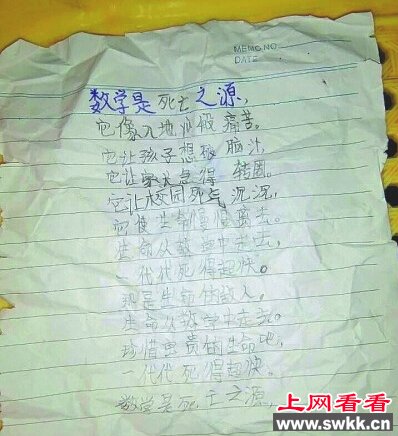 MEMO.NO
DATE
数学是死亡之源,
它像入地狱般痛苦。
它让孩子想破脑汁,
它让家长急得转圈。
它让校园死气沉沉,
它使生命慢慢离去。
生命从数学中走去,
一代代死得超快。
那是生命的敌人,
生命从数学中走去。
珍惜宝贵的生命吧,
一代代死得超快。
数学是死亡之源,
上网看看
www.swkk.cn